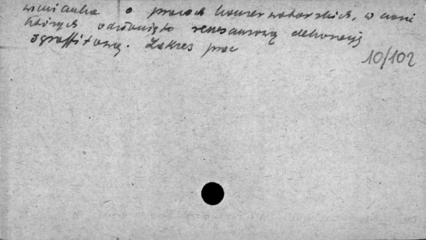 wzmianka o pracach konserwatorskich, w czasie
których odsłonięto renesansową dekorację
sgraffitową. Zakres prac
10/102